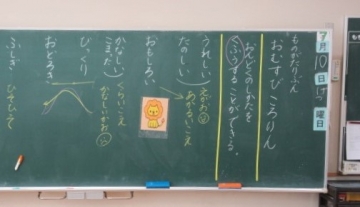 7月10日
曜日
ものがたりぶん
おむすびころりん
おんどくのしかたを
くふうすることができる。
うれしい
たのしい
えがお
あかるいこえ
おもしろい
かなしい
こまった
くらいこえ
かなしいかお
びっくり
おどろき
ふしぎ